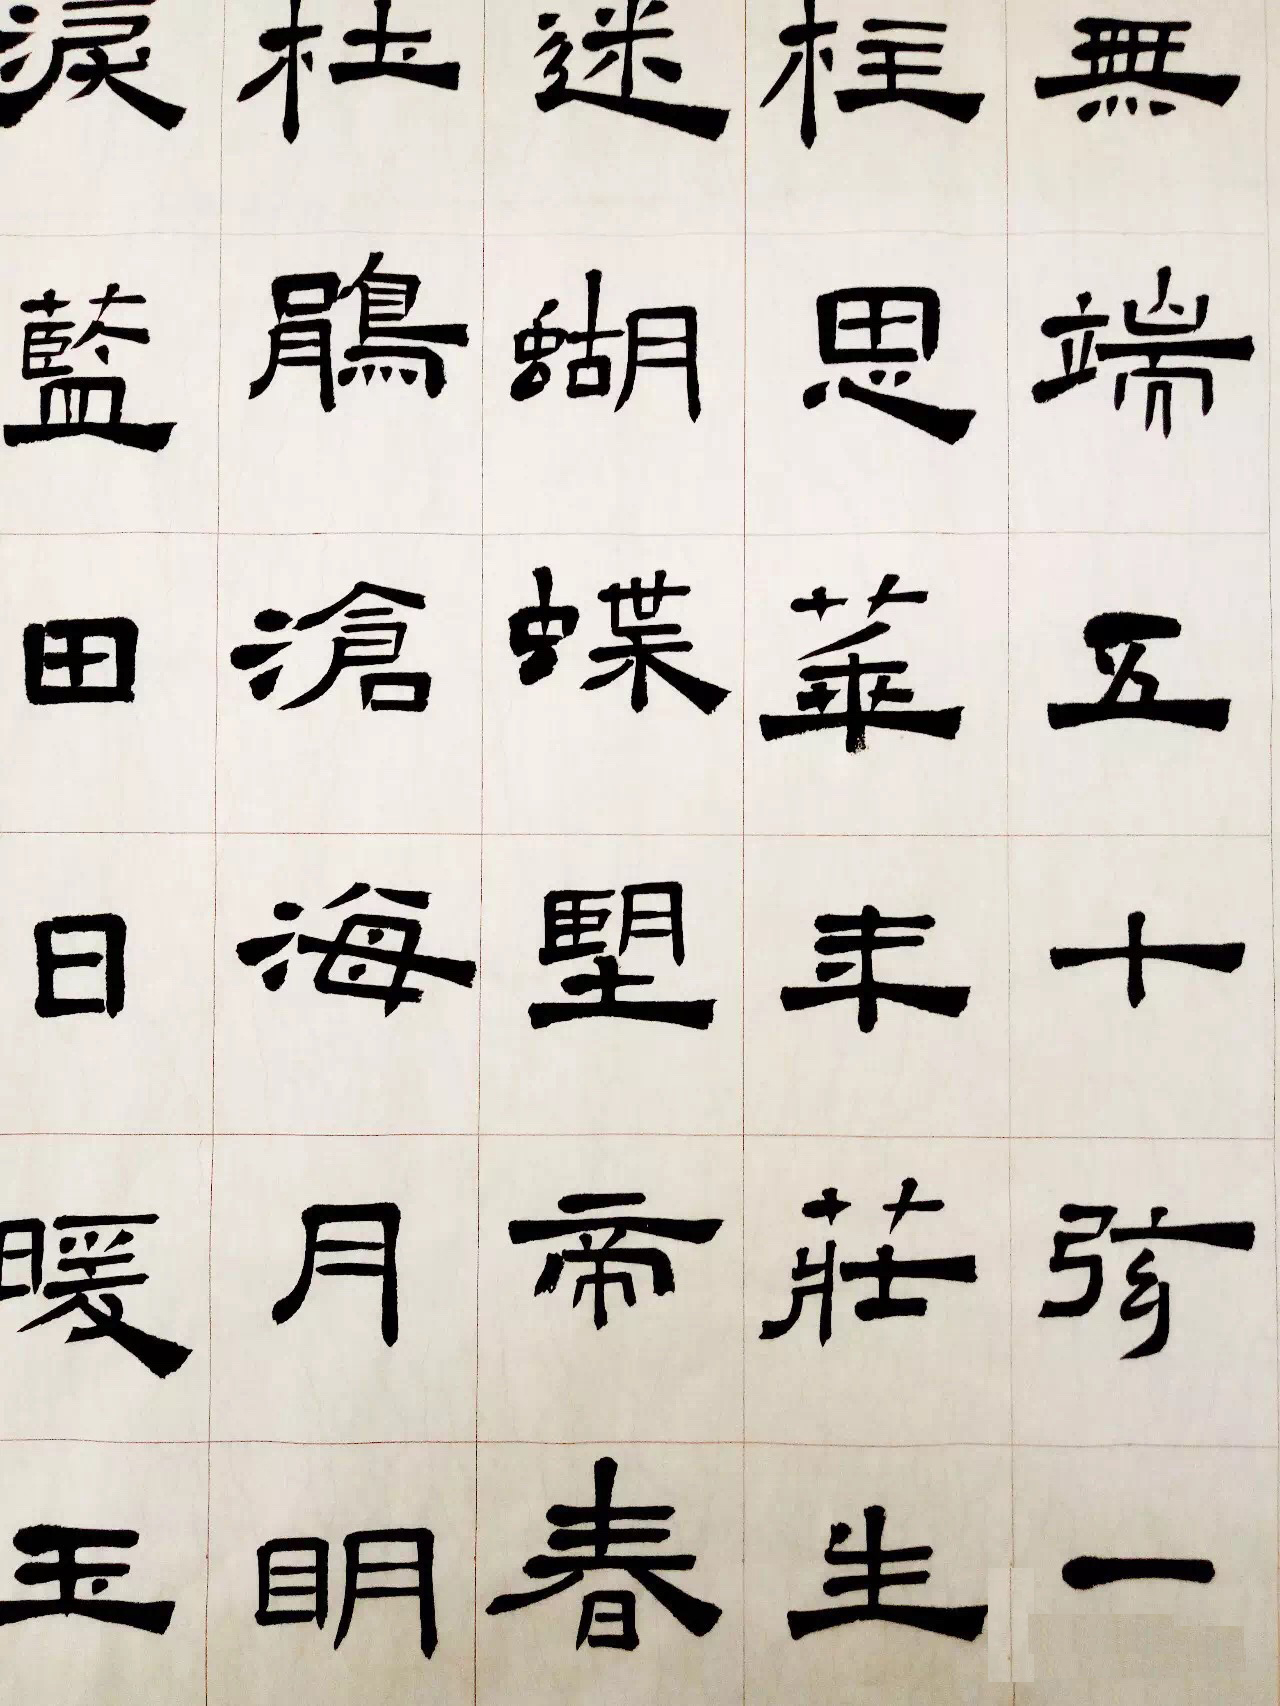 無端五十弦一
柱思華年莊生
迷蝴蝶望帝春
杜鵑滄海月明
淚藍田日暖玉